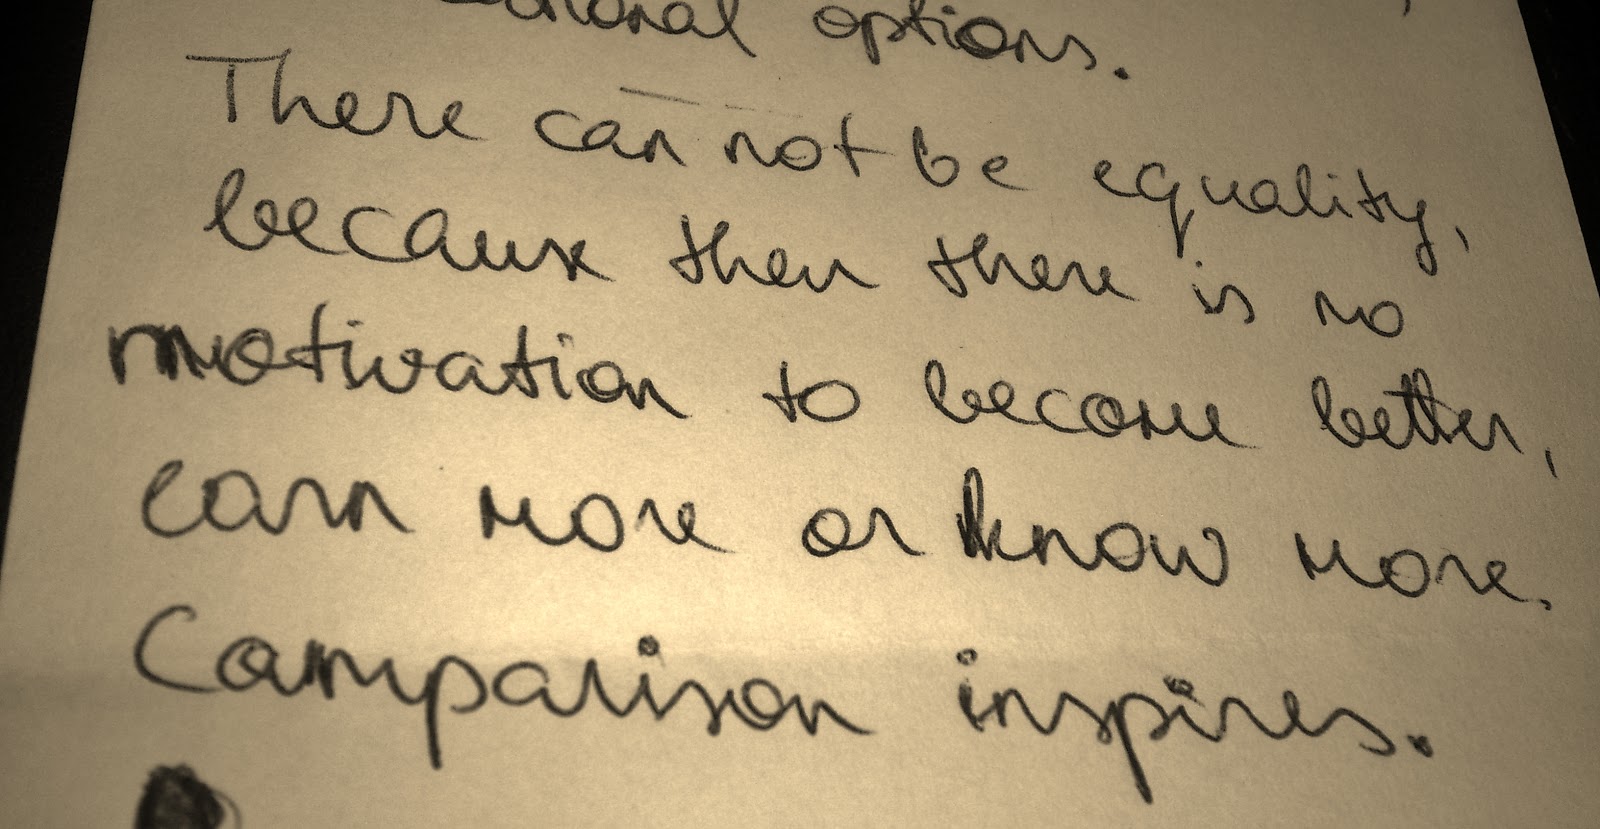 options.
There can not be equality,
because then there is no
motivation to become better,
earn more or know more.
Comparison inspires.